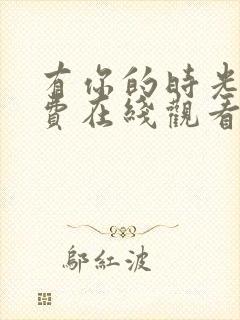 有你的時光
費在綫觀看
鄔紅波